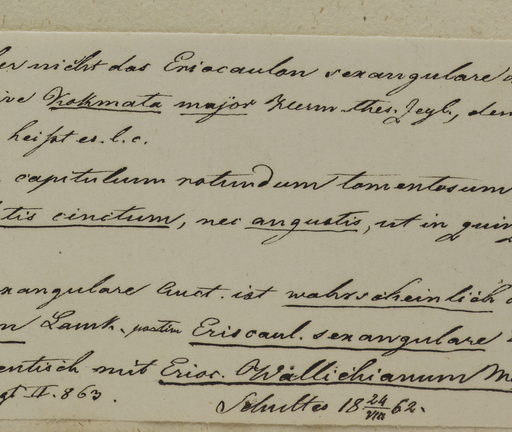 er nicht das Eriocaulon sexangulare
ive Kokmata major Herm. thes. Zeyl., den
heißt es l.c.
capitulum rotundum tomentosum
tis cinctum, nec angustis, ut in quin
xangulare Auct. ist wahrscheinlich
n Lamk. Eriocaul. sexangulare
entisch mit Erioc. Wallichianum M
II. 863.
Schultes 18 24/VII 62.